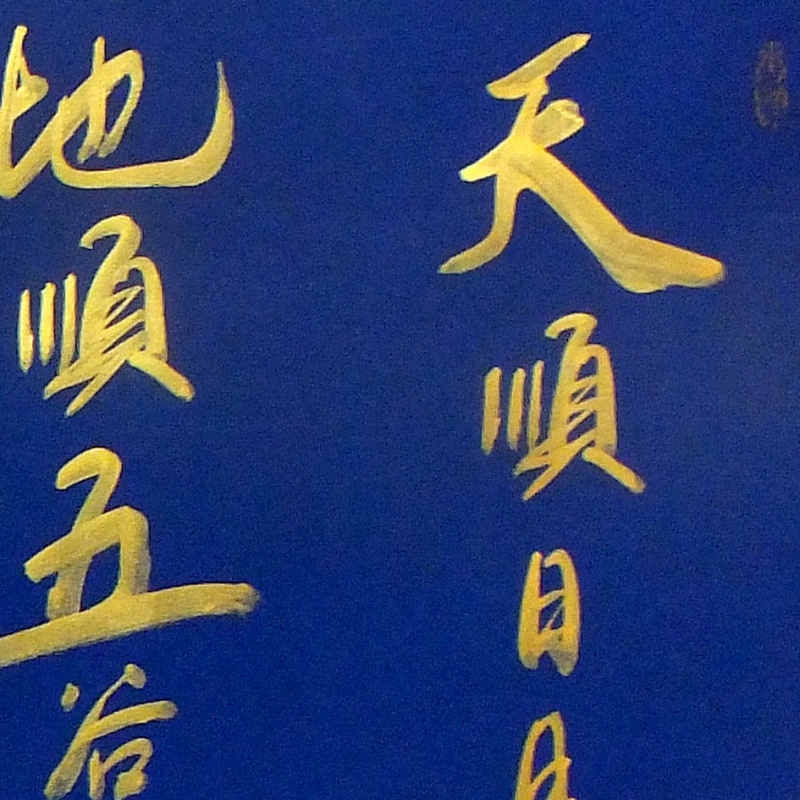 天順日月
地順五谷